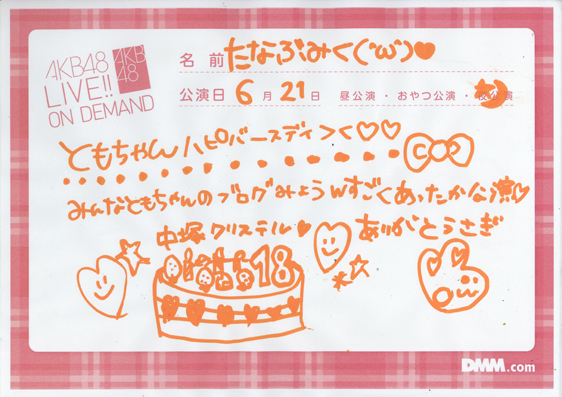 AKB48
LIVE!!
ON DEMAND
AKB
48
名 前 たなぶみく(´ω`)♥
公演日 6月21日 昼公演・おやつ公演・夜公演
ともちゃんハピバースディ>< ♡♡
みんなともちゃんのブログみようwすごくあったかな公演♡
中塚クリステル♥ ありがとうさぎ
18
DMM.com